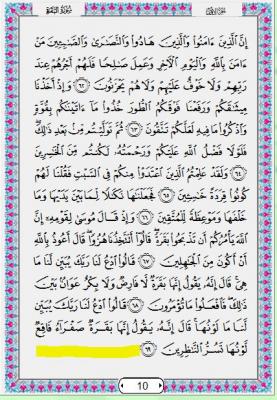 الجزء الأول سورة البقرة
إِنَّ الَّذِينَ ءَامَنُوا وَالَّذِينَ هَادُوا وَالنَّصَٰرَىٰ وَالصَّٰبِـِٔينَ مَنْ
ءَامَنَ بِاللَّهِ وَالْيَوْمِ الْءَاخِرِ وَعَمِلَ صَٰلِحًا فَلَهُمْ أَجْرُهُمْ عِندَ
رَبِّهِمْ وَلَا خَوْفٌ عَلَيْهِمْ وَلَا هُمْ يَحْزَنُونَ ٦٢ وَإِذْ أَخَذْنَا
مِيثَٰقَكُمْ وَرَفَعْنَا فَوْقَكُمُ الطُّورَ خُذُوا مَا ءَاتَيْنَٰكُم بِقُوَّةٍ
وَاذْكُرُوا مَا فِيهِ لَعَلَّكُمْ تَتَّقُونَ ٦٣ ثُمَّ تَوَلَّيْتُم مِّن بَعْدِ ذَٰلِكَ
فَلَوْلَا فَضْلُ اللَّهِ عَلَيْكُمْ وَرَحْمَتُهُ لَكُنتُم مِّنَ الْخَٰسِرِينَ
٦٤ وَلَقَدْ عَلِمْتُمُ الَّذِينَ اعْتَدَوْا مِنكُمْ فِي السَّبْتِ فَقُلْنَا لَهُمْ
كُونُوا قِرَدَةً خَٰسِـِٔينَ ٦٥ فَجَعَلْنَٰهَا نَكَٰلًا لِّمَا بَيْنَ يَدَيْهَا وَمَا
خَلْفَهَا وَمَوْعِظَةً لِّلْمُتَّقِينَ ٦٦ وَإِذْ قَالَ مُوسَىٰ لِقَوْمِهِ إِنَّ
اللَّهَ يَأْمُرُكُمْ أَن تَذْبَحُوا بَقَرَةً قَالُوا أَتَتَّخِذُنَا هُزُوًا قَالَ أَعُوذُ بِاللَّهِ
أَنْ أَكُونَ مِنَ الْجَٰهِلِينَ ٦٧ قَالُوا ادْعُ لَنَا رَبَّكَ يُبَيِّن لَّنَا مَا
هِيَ قَالَ إِنَّهُ يَقُولُ إِنَّهَا بَقَرَةٌ لَّا فَارِضٌ وَلَا بِكْرٌ عَوَانٌ بَيْنَ
ذَٰلِكَ فَافْعَلُوا مَا تُؤْمَرُونَ ٦٨ قَالُوا ادْعُ لَنَا رَبَّكَ يُبَيِّن
لَّنَا مَا لَوْنُهَا قَالَ إِنَّهُ يَقُولُ إِنَّهَا بَقَرَةٌ صَفْرَاءُ فَاقِعٌ
لَّوْنُهَا تَسُرُّ النَّٰظِرِينَ ٦٩
10